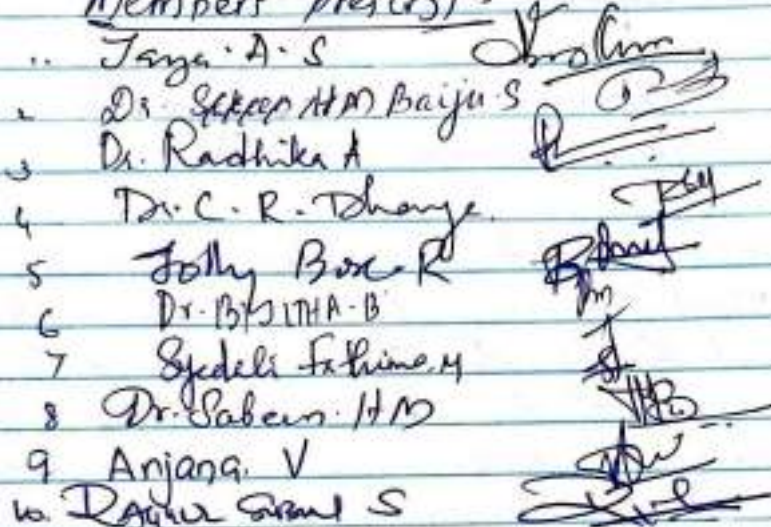 Members present
Jaya. A. S
2 Dr. Baiju. S
3 Dr. Radhika A
4 Dr. C. R. Dhanya.
5 Jolly Bose. R
6 Dr. BIJITHA. B
7 Syedali Fathima. M
8 Dr. Sabeen. HM
9 Anjana. V
10. S